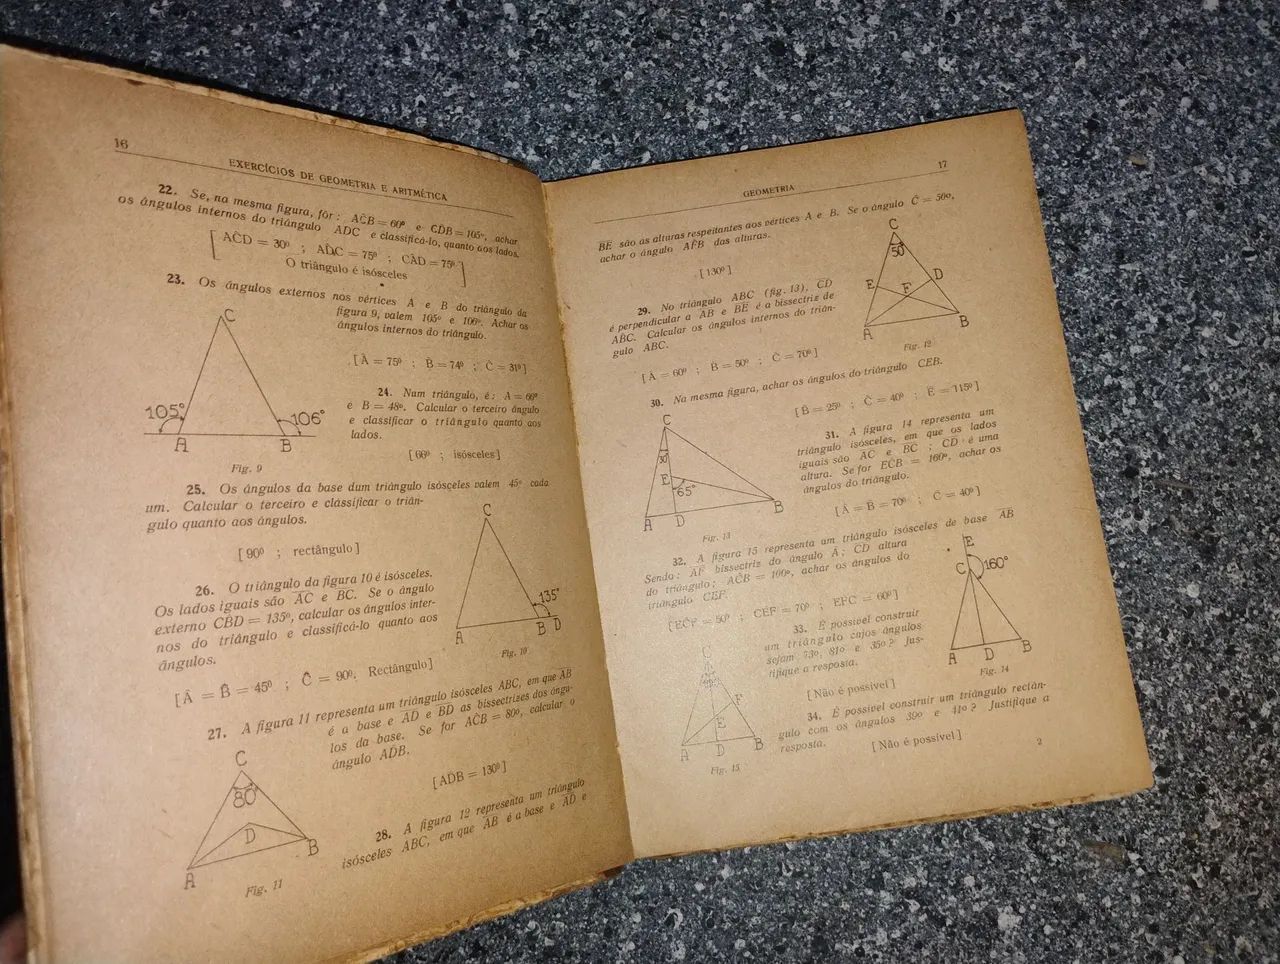 16
EXERCÍCIOS DE GEOMETRIA E ARITMÉTICA
22. Se, na mesma figura, fôr: AĈB = 60º e CD̂B = 105º, achar
os ângulos internos do triângulo ADC e classificá-lo, quanto aos lados.
[AĈD = 30º ; AD̂C = 75º ; CÂD = 75º
O triângulo é isósceles]
23. Os ângulos externos nos vértices A e B do triângulo da
figura 9, valem 105º e 106º. Achar os
ângulos internos do triângulo.
[Â = 75º ; B̂ = 74º ; Ĉ = 31º]
C
105º
106º
A
B
Fig. 9
24. Num triângulo, é: A = 66º
e B = 48º. Calcular o terceiro ângulo
e classificar o triângulo quanto aos
lados.
[66º ; isósceles]
25. Os ângulos da base dum triângulo isósceles valem 45º cada
um. Calcular o terceiro e classificar o triân-
gulo quanto aos ângulos.
[90º ; rectângulo]
26. O triângulo da figura 10 é isósceles.
Os lados iguais são AC e BC. Se o ângulo
externo CB̂D = 135º, calcular os ângulos inter-
nos do triângulo e classificá-lo quanto aos
ângulos.
[Â = B̂ = 45º ; Ĉ = 90º, Rectângulo]
C
135º
A
B D
Fig. 10
27. A figura 11 representa um triângulo isósceles ABC, em que AB
é a base e AD e BD as bissectrizes dos ângu-
los da base. Se for AĈB = 80º, calcular o
ângulo AD̂B.
[AD̂B = 130º]
C
80º
D
A
B
Fig. 11
28. A figura 12 representa um triângulo
isósceles ABC, em que AB é a base e AD e
GEOMETRIA
17
BE são as alturas respeitantes aos vértices A e B. Se o ângulo Ĉ = 50º,
achar o ângulo AF̂B das alturas.
[130º]
C
50º
E
D
F
A
B
Fig. 12
29. No triângulo ABC (fig. 13), CD
é perpendicular a AB e BE é a bissectriz de
ABC. Calcular os ângulos internos do triân-
gulo ABC.
[Â = 60º ; B̂ = 50º ; Ĉ = 70º]
30. Na mesma figura, achar os ângulos do triângulo CEB.
[B̂ = 25º ; Ĉ = 40º ; Ê = 115º]
C
30º
E
65º
A
D
B
Fig. 13
31. A figura 14 representa um
triângulo isósceles, em que os lados
iguais são AC e BC ; CD é uma
altura. Se for EĈB = 160º, achar os
ângulos do triângulo.
[Â = B̂ = 70º ; Ĉ = 40º]
32. A figura 15 representa um triângulo isósceles de base AB
Sendo: AF bissectriz do ângulo Â; CD altura
do triângulo; AĈB = 100º, achar os ângulos do
triângulo CEF.
[EĈF = 50º ; CÊF = 70º ; EF̂C = 60º]
E
C
160º
A
D
B
Fig. 14
33. É possível construir
um triângulo cujos ângulos
sejam 73º, 81º e 35º? Jus-
tifique a resposta.
[Não é possível]
C
F
E
A
D
B
Fig. 15
34. É possível construir um triângulo rectân-
gulo com os ângulos 39º e 41º? Justifique a
resposta.
[Não é possível]
2